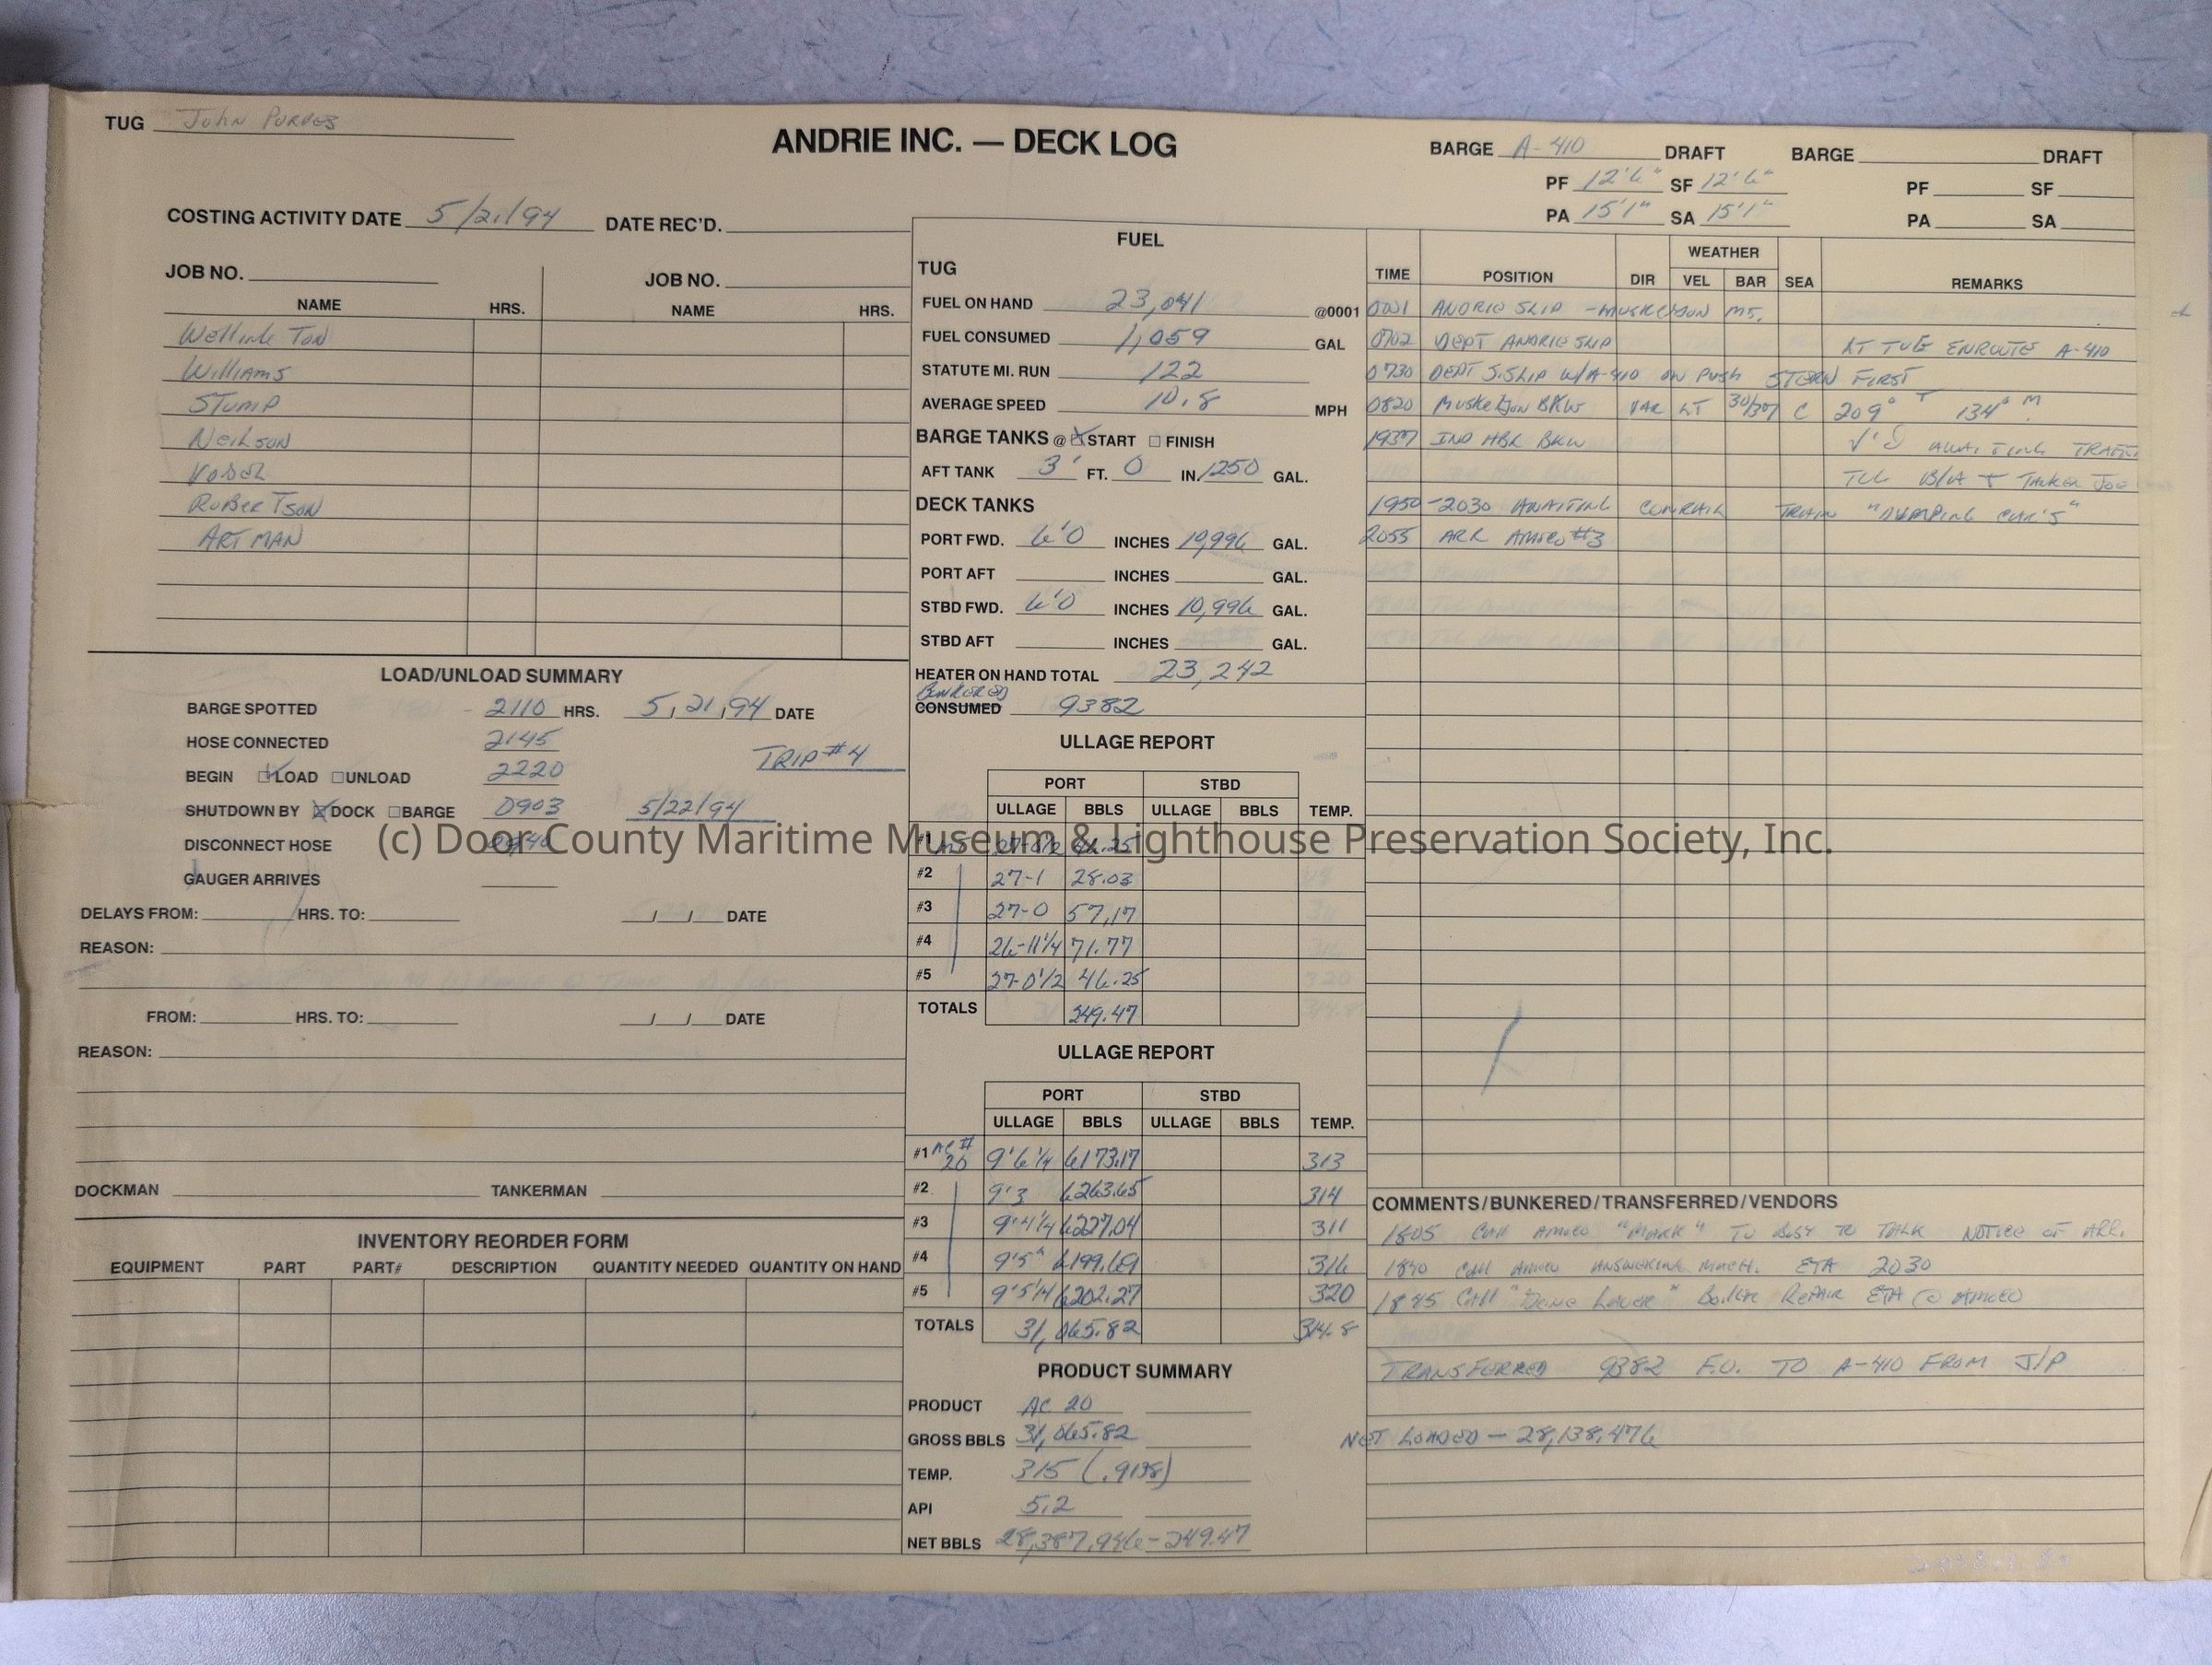 TUG John Purves
ANDRIE INC. — DECK LOG
BARGE A-410 DRAFT BARGE DRAFT
PF 12'6" SF 12'6" PF SF
PA 15'1" SA 15'1" PA SA
COSTING ACTIVITY DATE 5/21/94 DATE REC'D.
JOB NO. JOB NO.
NAME HRS. NAME HRS.
Wellington
Williams
Stump
Neilson
Robertson
Artman
LOAD/UNLOAD SUMMARY
BARGE SPOTTED 2110 HRS. 5/21/94 DATE
HOSE CONNECTED 2145
TRIP #4
BEGIN LOAD UNLOAD 2220
SHUTDOWN BY DOCK BARGE 0903 5/22/94
DISCONNECT HOSE
GAUGER ARRIVES
DELAYS FROM: HRS. TO: / / DATE
REASON:
FROM: HRS. TO: / / DATE
REASON:
DOCKMAN TANKERMAN
INVENTORY REORDER FORM
EQUIPMENT PART PART# DESCRIPTION QUANTITY NEEDED QUANTITY ON HAND
FUEL
TUG
FUEL ON HAND 23,041 @0001
FUEL CONSUMED 1,059 GAL
STATUTE MI. RUN 122
AVERAGE SPEED 10.8 MPH
BARGE TANKS @ START FINISH
AFT TANK 3' FT. 0 IN. 1250 GAL.
DECK TANKS
PORT FWD. 6'0 INCHES 10,996 GAL.
PORT AFT INCHES GAL.
STBD FWD. 6'0 INCHES 10,996 GAL.
STBD AFT INCHES GAL.
HEATER ON HAND TOTAL 23,242
BUNKERED
CONSUMED 9382
ULLAGE REPORT
PORT STBD
ULLAGE BBLS ULLAGE BBLS TEMP.
#1 27-0 1/2 46.25
#2 27-1 28.03
#3 27-0 57.17
#4 26-11 1/4 71.77
#5 27-0 1/2 46.25
TOTALS 249.47
ULLAGE REPORT
PORT STBD
ULLAGE BBLS ULLAGE BBLS TEMP.
#1 AC# 20 9'6 1/4 6173.17 313
#2 9'3 6263.65 314
#3 9'4 1/4 6227.04 311
#4 9'5" 6199.69 316
#5 9'5 1/4 6202.27 320
TOTALS 31,065.82 314.8
PRODUCT SUMMARY
PRODUCT AC 20
GROSS BBLS 31,065.82
TEMP. 315 (.9138)
API 5.2
NET BBLS 28,387.946-249.47
WEATHER
TIME POSITION DIR VEL BAR SEA REMARKS
0001 ANDRIE SLIP - MUSKEGON MI.
0702 DEPT ANDRIE SLIP LT TUG ENROUTE A-410
0730 DEPT S. SLIP W/A-410 ON PUSH STERN FIRST
0820 MUSKEGON BKW VAR LT 30/37 C 209° T 134° M
1937 IND HBR BKW √'D AWAITING TRAFFIC
1950-2030 AWAITING CONRAIL TRAIN "DUMPING CAR'S"
2055 ARR AMOCO #3
COMMENTS/BUNKERED/TRANSFERRED/VENDORS
1805 CALL AMOCO "MARK" TO BUSY TO TALK NOTICE OF ARR.
1840 CALL AMOCO ANSWERING MACH. ETA 2030
1845 CALL BOILER REPAIR ETA @ AMOCO
TRANSFERRED 9382 F.O. TO A-410 FROM J/P
NET LOADED — 28,138.476
(c) Door County Maritime Museum & Lighthouse Preservation Society, Inc.